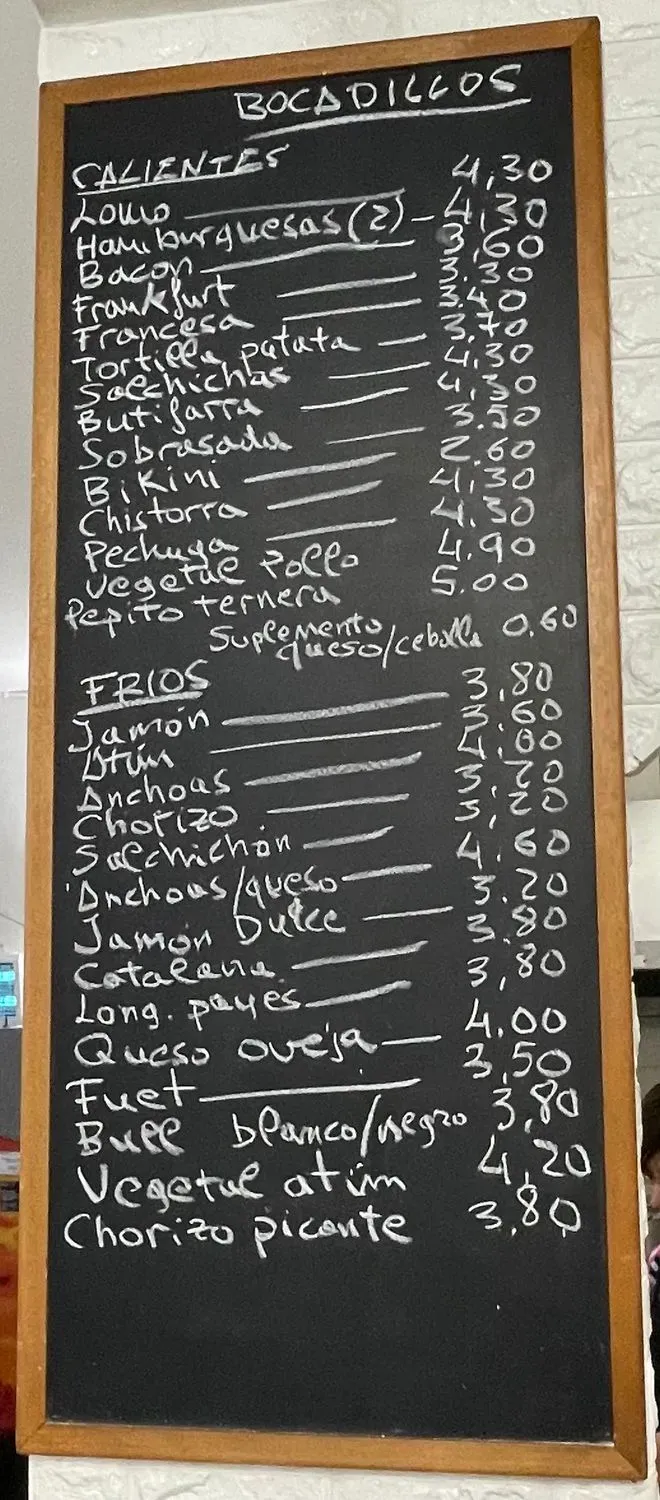 BOCADILLOS
CALIENTES
Lomo — 4,30
Hamburguesas (2) — 4,30
Bacon — 3,60
Frankfurt — 3.30
Francesa — 3.40
Tortilla patata — 3.70
Salchichas — 4,30
Butifarra — 4,30
Sobrasada — 3.50
Bikini — 2.60
Chistorra — 4,30
Pechuga — 4.30
Vegetal Pollo 4.90
Pepito ternera 5.00
Suplemento queso/cebolla 0.60
FRIOS
Jamón — 3,80
Atún — 3,60
Anchoas — 4,00
Chorizo — 3,20
Salchichón — 3,20
Anchoas/queso — 4.60
Jamón Dulce — 3.20
Catalana — 3.80
Long. payes — 3,80
Queso oveja — 4.00
Fuet — 3,50
Bull blanco/negro 3,80
Vegetal atún 4,20
Chorizo picante 3,80